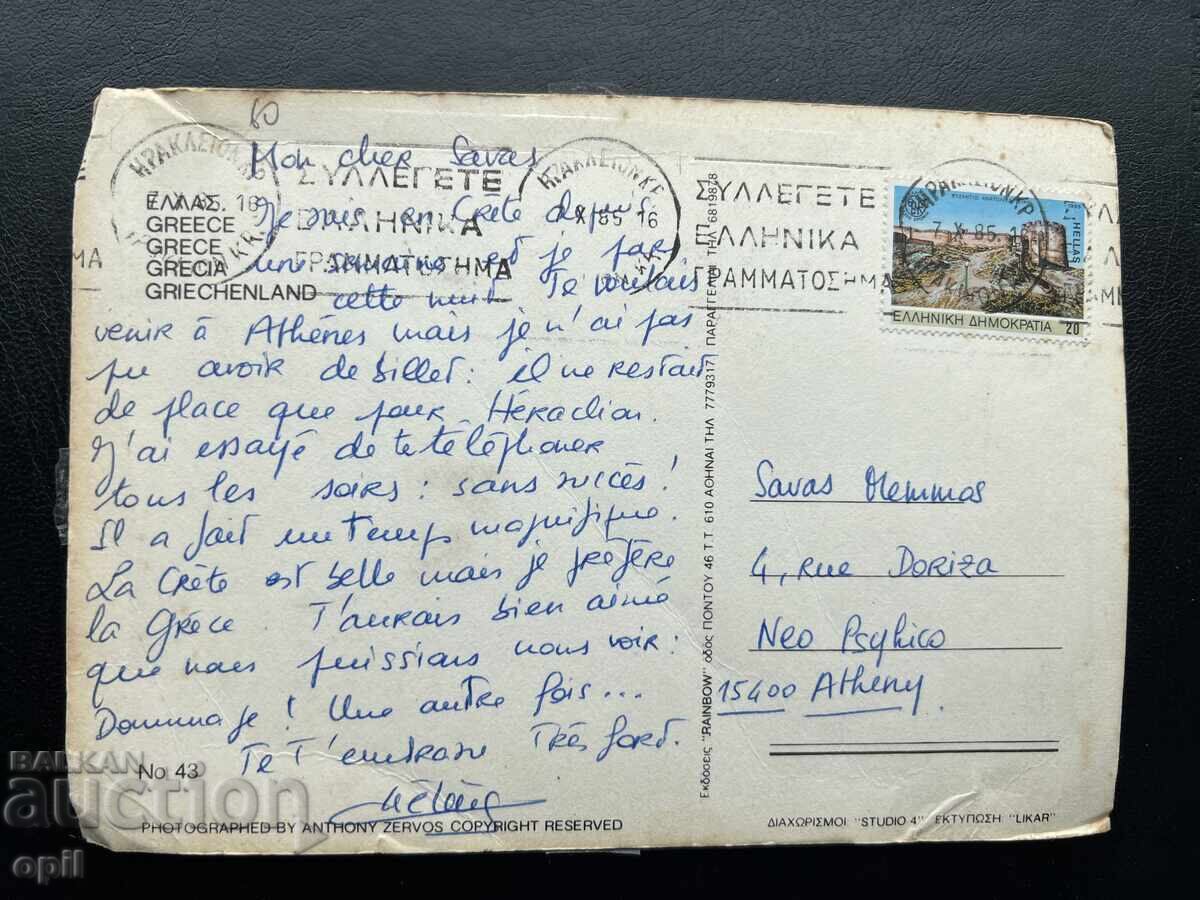 60
Mon cher Savas
ΗΡΑΚΛΕΙΟΝ ΚΡ
7 X 85 16
ΣΥΛΛΕΓΕΤΕ
ΕΛΛΗΝΙΚΑ
ΓΡΑΜΜΑΤΟΣΗΜΑ
ΗΡΑΚΛΕΙΟΝ ΚΡ
X 85 16
ΣΥΛΛΕΓΕΤΕ
ΕΛΛΗΝΙΚΑ
ΓΡΑΜΜΑΤΟΣΗΜΑ
ΗΡΑΚΛΕΙΟΝ ΚΡ
7 X 85 16
ΕΛΛΑΣ
GREECE
GRECE
GRECIA
GRIECHENLAND
HELLAS
ΕΛΛΗΝΙΚΗ ΔΗΜΟΚΡΑΤΙΑ 20
Je suis en Crète depuis
une semaine et je pars
cette nuit. Je voulais
venir à Athènes mais je n'ai pas
pu avoir de billet : il ne restait
de place que pour Héraclion.
J'ai essayé de te téléphoner
tous les soirs : sans succès !
Il a fait un temps magnifique.
La Crète est belle mais je préfère
la Grèce. J'aurais bien aimé
que nous puissions nous voir :
Dommage ! Une autre fois...
Je t'embrasse Très fort.
Savas Memmos
4, Rue DORIZA
Neo Psyhico
15400 Atheny
Εκδόσεις "RAINBOW" οδός ΠΟΝΤΟΥ 46 Τ.Τ 610 ΑΘΗΝΑΙ ΤΗΛ 7779317 ΠΑΡΑΓΓΕΛΙΑΙ ΤΗΛ 6819878
No 43
PHOTOGRAPHED BY ANTHONY ZERVOS COPYRIGHT RESERVED
ΔΙΑΧΩΡΙΣΜΟΙ "STUDIO 4" ΕΚΤΥΠΩΣΗ "LIKAR"
BALKAN
auction
opil